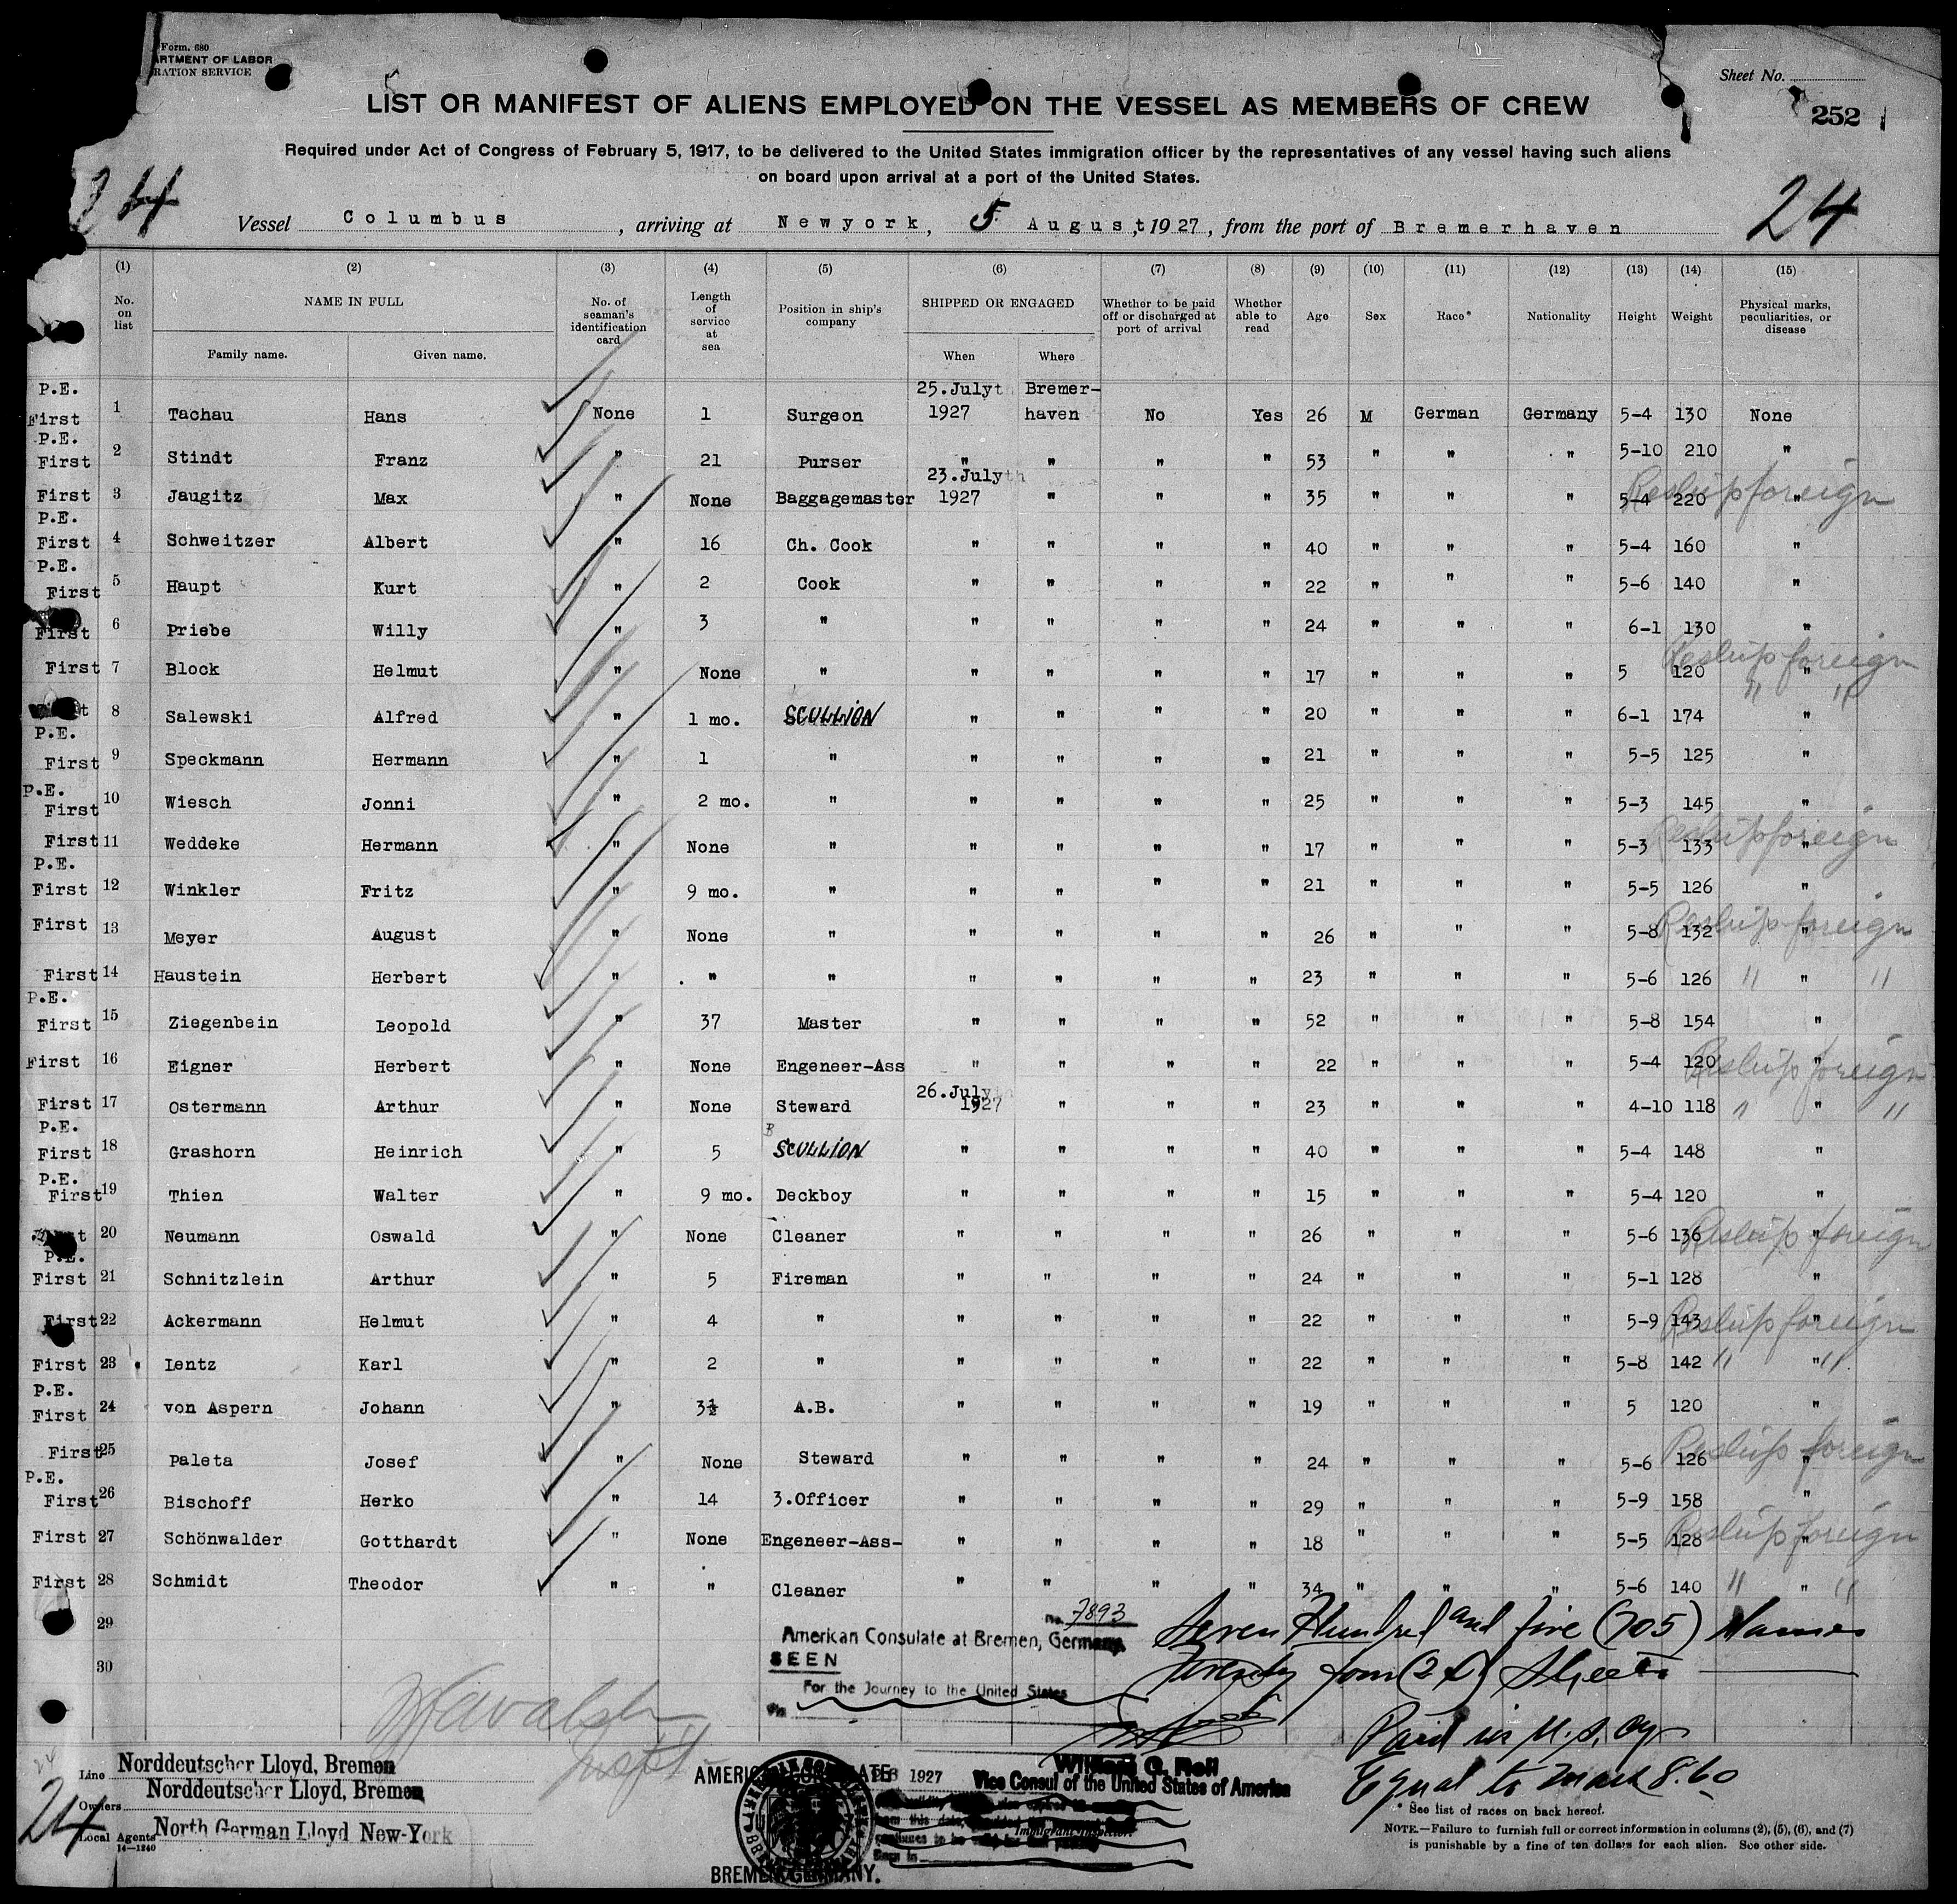 Form. 680
RTMENT OF LABOR
RATION SERVICE
Sheet No.
252
LIST OR MANIFEST OF ALIENS EMPLOYED ON THE VESSEL AS MEMBERS OF CREW
Required under Act of Congress of February 5, 1917, to be delivered to the United States immigration officer by the representatives of any vessel having such aliens
on board upon arrival at a port of the United States.
24 24
Vessel Columbus, arriving at Newyork, 5 August, 1927, from the port of Bremerhaven
(1) (2) (3) (4) (5) (6) (7) (8) (9) (10) (11) (12) (13) (14) (15)
No. on list NAME IN FULL No. of seaman's identification card Length of service at sea Position in ship's company SHIPPED OR ENGAGED Whether to be paid off or discharged at port of arrival Whether able to read Age Sex Race* Nationality Height Weight Physical marks, peculiarities, or disease
Family name. Given name. When Where
P.E. 25.Julyt Bremer-
First 1 Tachau Hans None 1 Surgeon 1927 haven No Yes 26 M German Germany 5-4 130 None
P.E.
First 2 Stindt Franz " 21 Purser " " " " 53 " " " 5-10 210 "
23.Julyth
First 3 Jaugitz Max " None Baggagemaster 1927 " " " 35 " " " 5-4 220 " Reship foreign
P.E.
First 4 Schweitzer Albert " 16 Ch. Cook " " " " 40 " " " 5-4 160 "
P.E.
First 5 Haupt Kurt " 2 Cook " " " " 22 " " " 5-6 140 "
First 6 Priebe Willy " 3 " " " " " 24 " " " 6-1 130 "
First 7 Block Helmut " None " " " " " 17 " " " 5 120 " Reship foreign
8 Salewski Alfred " 1 mo. SCULLION " " " " 20 " " " 6-1 174 " " "
P.E.
First 9 Speckmann Hermann " 1 " " " " " 21 " " " 5-5 125 "
P.E.
First 10 Wiesch Jonni " 2 mo. " " " " " 25 " " " 5-3 145 "
First 11 Weddeke Hermann " None " " " " " 17 " " " 5-3 133 " Reship foreign
P.E.
First 12 Winkler Fritz " 9 mo. " " " " " 21 " " " 5-5 126 "
First 13 Meyer August " None " " " " " 26 " " " 5-8 132 " Reship foreign
First 14 Haustein Herbert " " " " " " " 23 " " " 5-6 126 " " "
P.E.
First 15 Ziegenbein Leopold " 37 Master " " " " 52 " " " 5-8 154 "
First 16 Eigner Herbert " None Engeneer-Ass " " " " 22 " " " 5-4 120 " Reship foreign
26.Julyth
First 17 Ostermann Arthur " None Steward 1927 " " " 23 " " " 4-10 118 " " "
P.E.
First 18 Grashorn Heinrich " 5 SCULLION " " " " 40 " " " 5-4 148 "
P.E.
First 19 Thien Walter " 9 mo. Deckboy " " " " 15 " " " 5-4 120 "
20 Neumann Oswald " None Cleaner " " " " 26 " " " 5-6 136 " Reship foreign
P.E.
First 21 Schnitzlein Arthur " 5 Fireman " " " " 24 " " " 5-1 128 "
First 22 Ackermann Helmut " 4 " " " " " 22 " " " 5-9 143 " Reship foreign
First 23 Lentz Karl " 2 " " " " " 22 " " " 5-8 142 " " "
P.E.
First 24 von Aspern Johann " 3½ A.B. " " " " 19 " " " 5 120 "
First 25 Paleta Josef " None Steward " " " " 24 " " " 5-6 126 " Reship foreign
P.E.
First 26 Bischoff Herko " 14 3.Officer " " " " 29 " " " 5-9 158 "
First 27 Schönwalder Gotthardt " None Engeneer-Ass- " " " " 18 " " " 5-5 128 " Reship foreign
First 28 Schmidt Theodor " " Cleaner " " " " 34 " " " 5-6 140 " " "
29
30
No. 7893
American Consulate at Bremen, Germany
SEEN
For the Journey to the United States
Seven Hundred and five (705) Names
Twenty four (24) Sheets
Paid in U.S. Cy
Equal to Mark 8.60
Line Norddeutscher Lloyd, Bremen
Owners Norddeutscher Lloyd, Bremen
Local Agents North German Lloyd New-York
14-1240
24
1927
Vice Consul of the United States of America
Immigrant Inspector.
BREMEN GERMANY.
* See list of races on back hereof.
NOTE.—Failure to furnish full or correct information in columns (2), (5), (6), and (7)
is punishable by a fine of ten dollars for each alien. See other side.